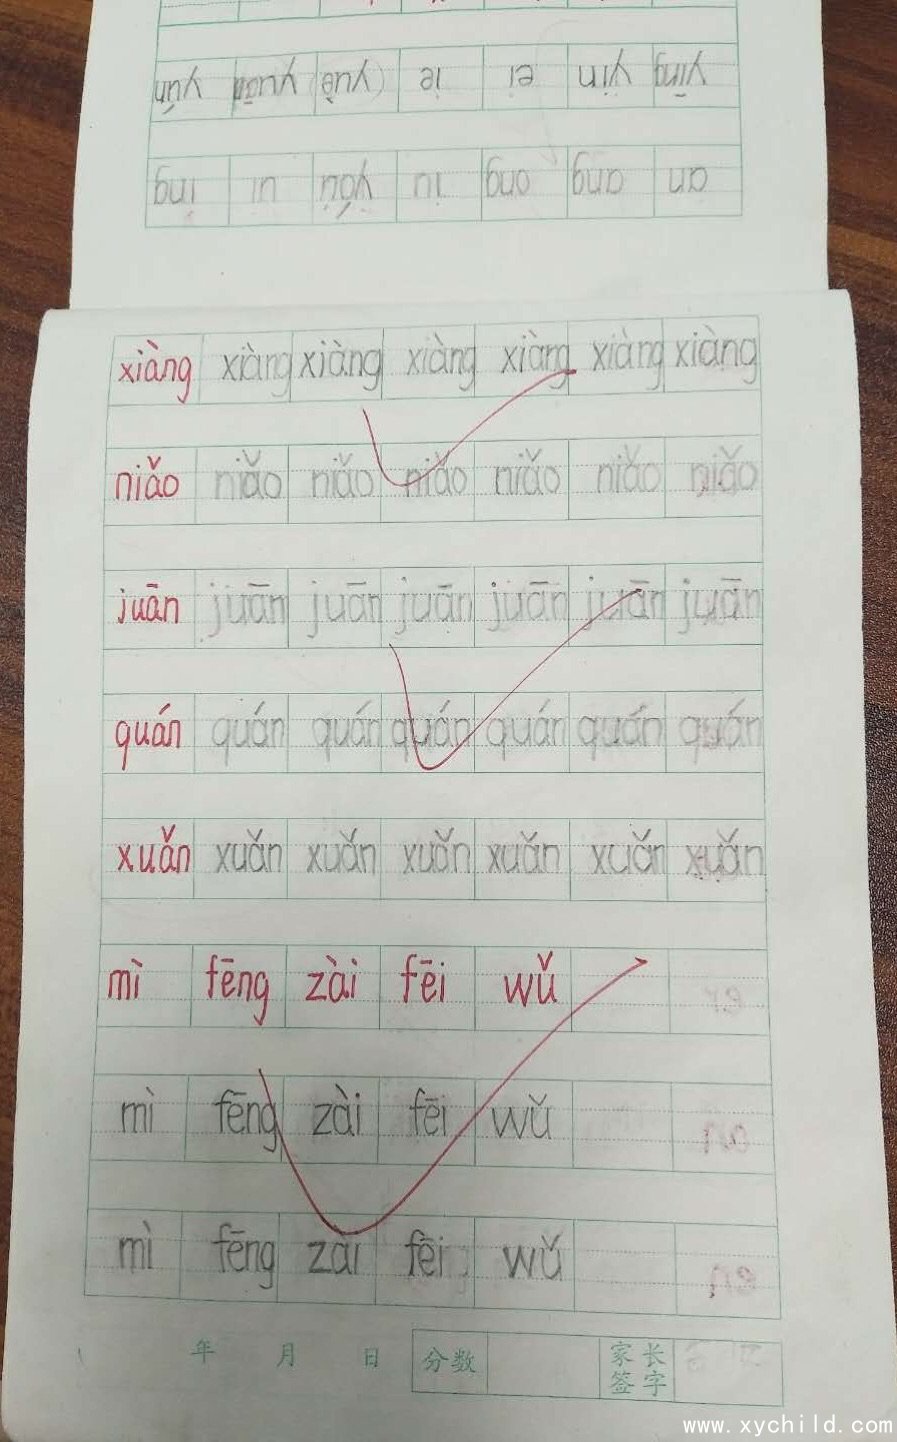 yún yuān yuè ie ei yin yīng
ing un yóu iu ong ang an
xiàng xiàng xiàng xiàng xiàng xiàng xiàng
niǎo niǎo niǎo niǎo niǎo niǎo niǎo
juān juān juān juān juān juān juān
quán quán quán quán quán quán quán
xuǎn xuǎn xuǎn xuǎn xuǎn xuǎn xuǎn
mì fēng zài fēi wǔ
mì fēng zài fēi wǔ
mì fēng zài fēi wǔ
年 月 日 分数 家长签字
www.xychild.com